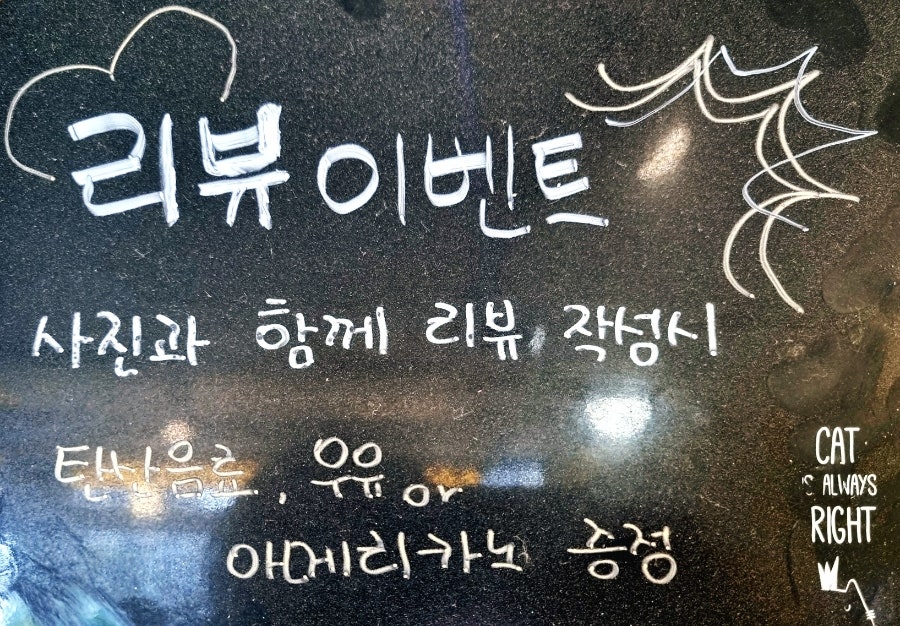 리뷰 이벤트
사진과 함께 리뷰 작성시
탄산음료, 우유 or
아메리카노 증정
CAT
IS ALWAYS
RIGHT